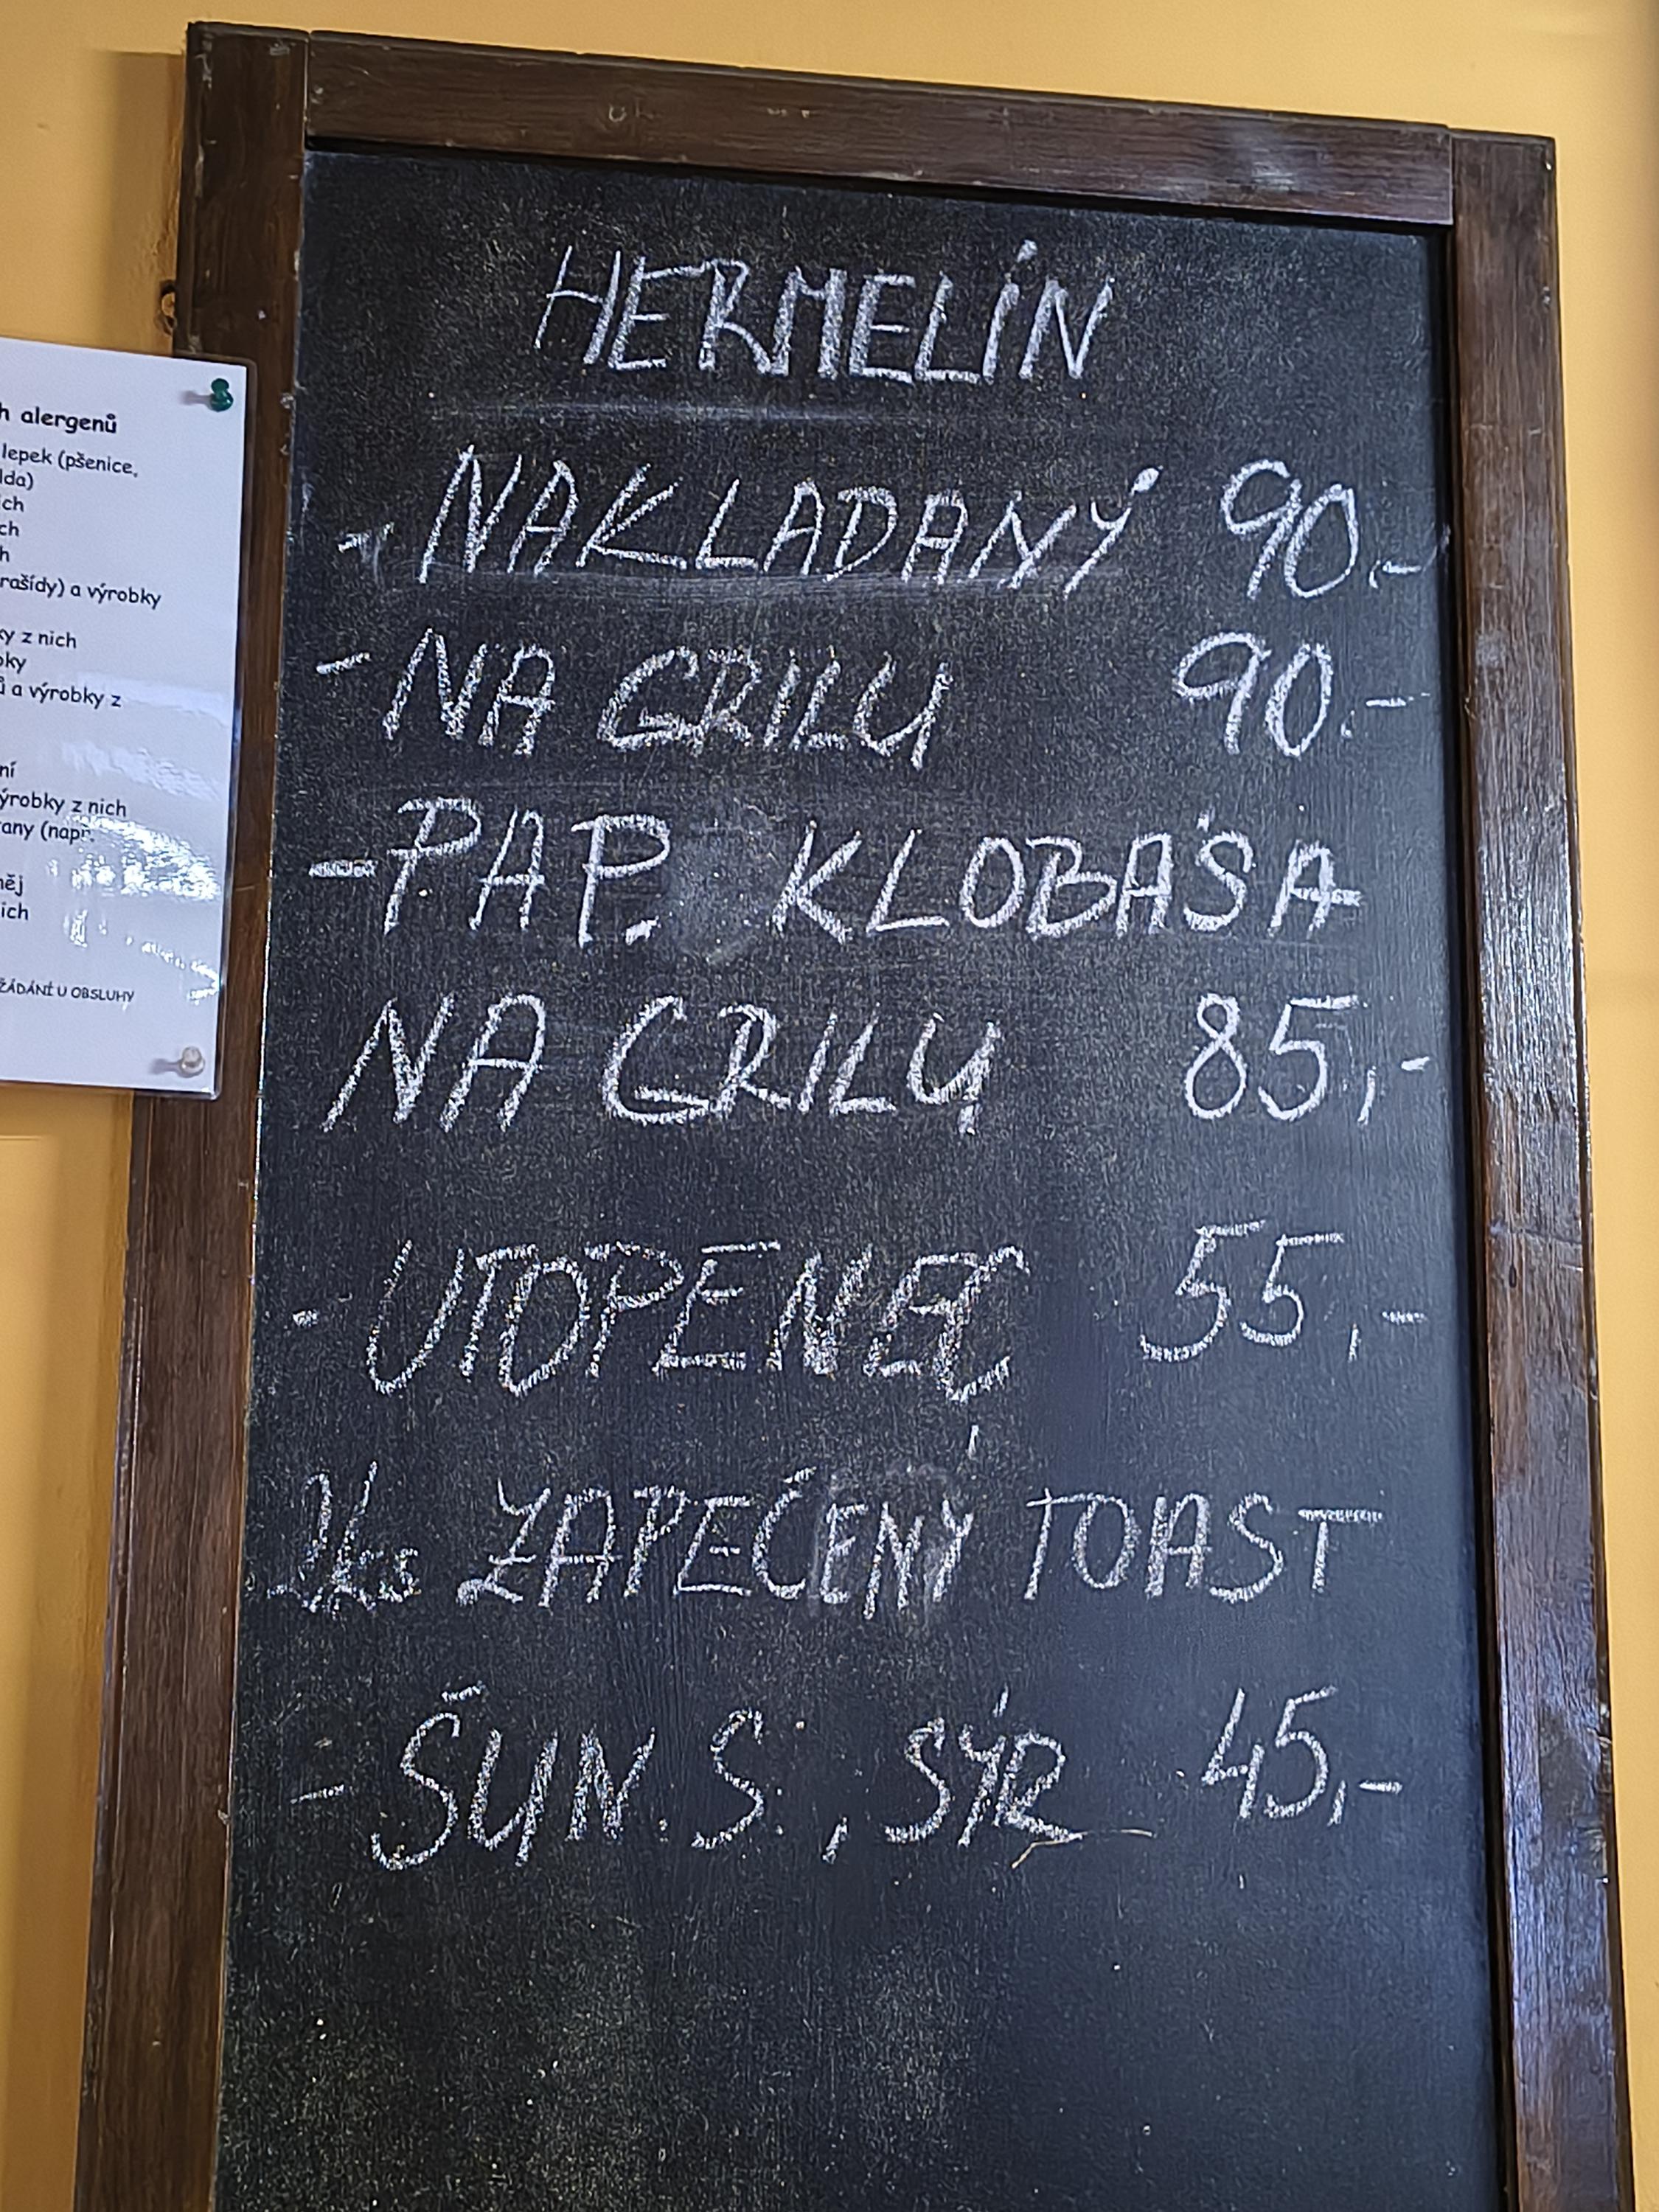 HERMELÍN
- NAKLADANÝ 90,-
- NA GRILU 90.-
- PAP. KLOBÁSA
NA GRILU 85,-
- UTOPENEC 55,-
1ks ZAPEČENÝ TOAST
- ŠUN. S., SÝR 45,-
h alergenů
lepek (pšenice,
lda)
ich
ch
h
rašídy) a výrobky
ky z nich
bky
ů a výrobky z
ní
ýrobky z nich
rany (např.
něj
ich
ŽÁDÁNÍ U OBSLUHY